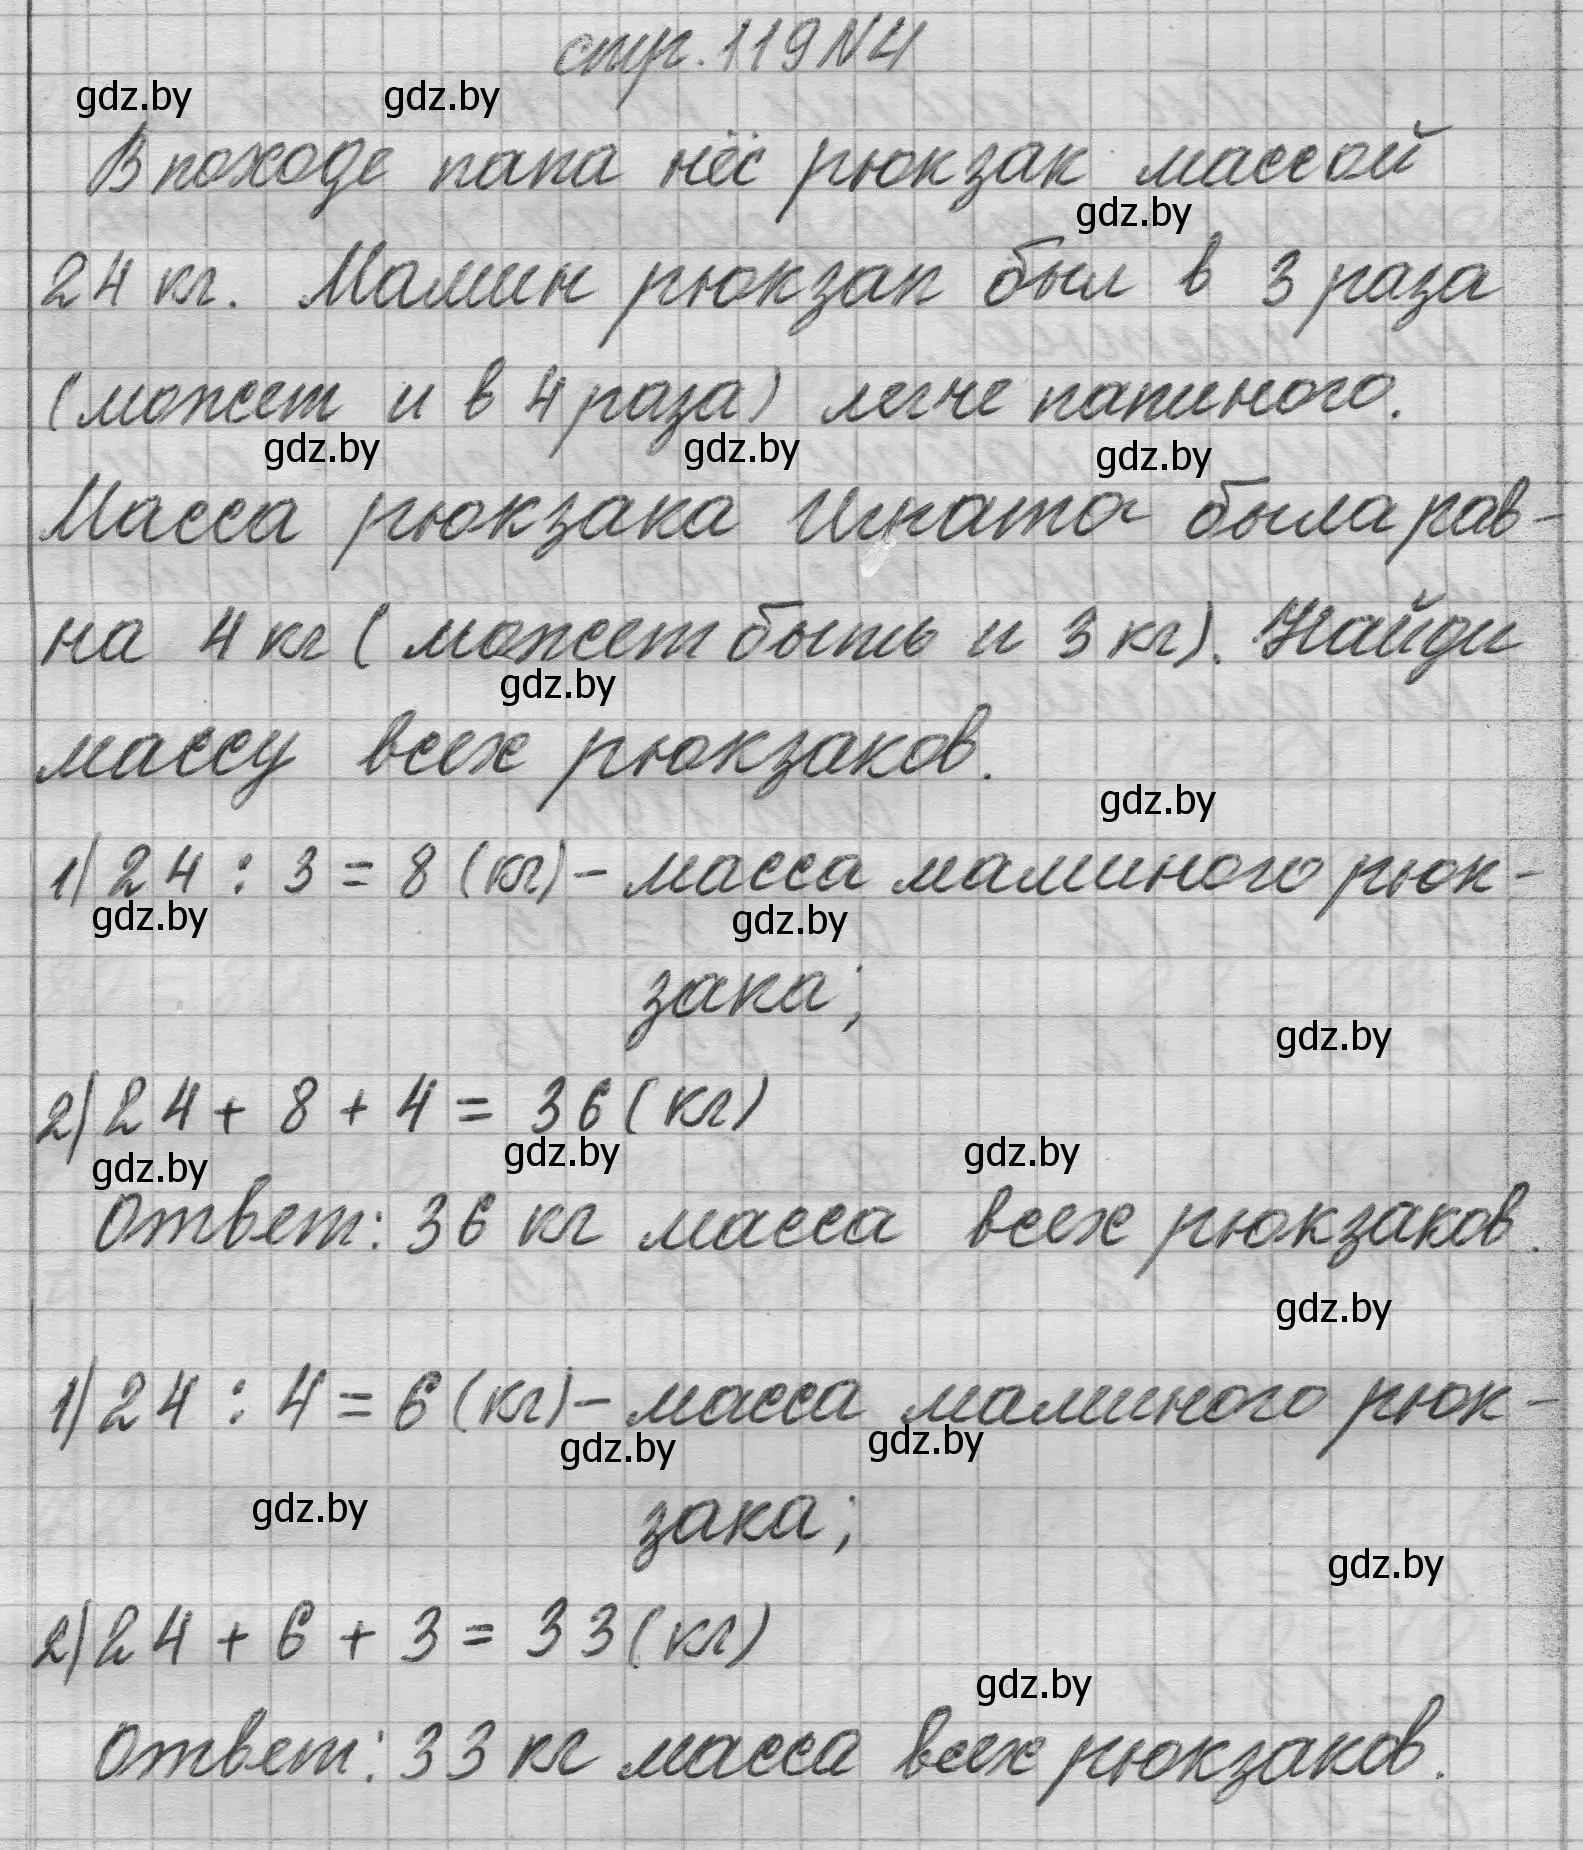 стр. 119 №4
gdz.by gdz.by
В походе папа нёс рюкзак массой
gdz.by
24 кг. Мамин рюкзак был в 3 раза
(может и в 4 раза) легче папиного.
gdz.by gdz.by gdz.by
Масса рюкзака Игната была рав-
на 4 кг (может быть и 3 кг). Найди
gdz.by
массу всех рюкзаков.
gdz.by
1) 24 : 3 = 8 (кг) - масса маминого рюк-
gdz.by gdz.by
зака;
gdz.by
2) 24 + 8 + 4 = 36 (кг)
gdz.by gdz.by gdz.by
Ответ: 36 кг масса всех рюкзаков.
gdz.by
1) 24 : 4 = 6 (кг) - масса маминого рюк-
gdz.by gdz.by
gdz.by
зака;
gdz.by
2) 24 + 6 + 3 = 33 (кг)
gdz.by
Ответ: 33 кг масса всех рюкзаков.